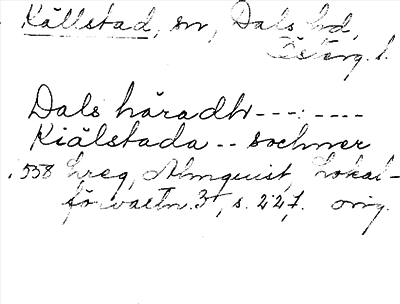 Källstad, sn, Dals hd,
Österg. l.
Dals häradh---.----
Kiälstada -- sochner
1558 Lreg, Almquist, Lokal-
förvaltn. 3, s. 227. orig.